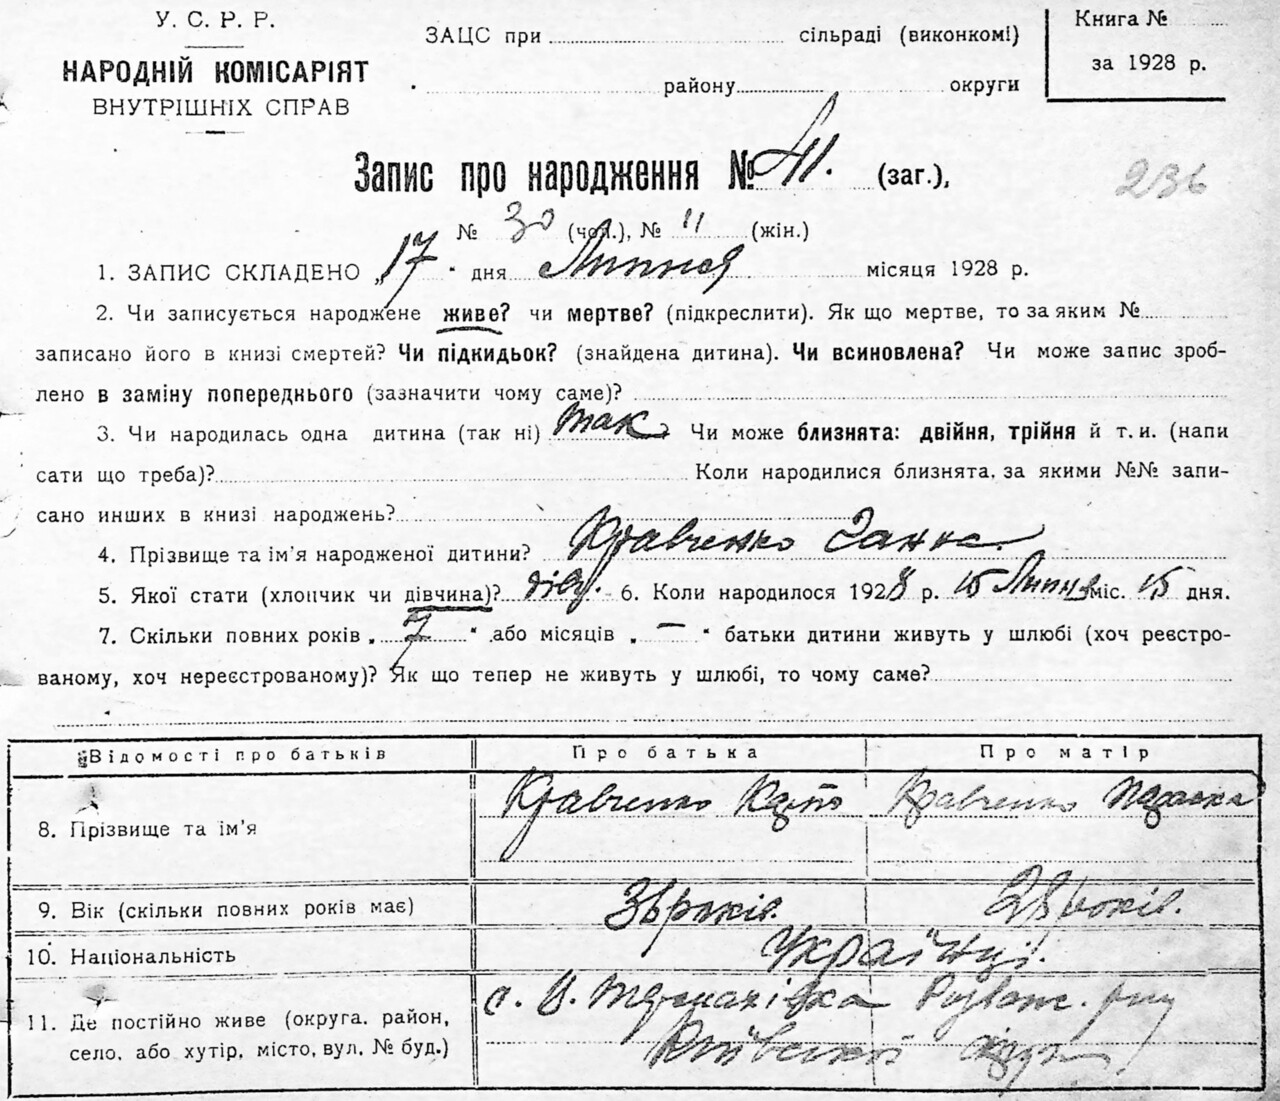 У. С. Р. Р.
НАРОДНІЙ КОМІСАРІЯТ
ВНУТРІШНІХ СПРАВ
ЗАЦС при сільраді (виконкомі)
району округи
Книга №
за 1928 р.
Запис про народження № 41. (заг.),
236
№ 30 (чол.), № 11 (жін.)
1. ЗАПИС СКЛАДЕНО „17“ дня Липня місяця 1928 р.
2. Чи записується народжене живе? чи мертве? (підкреслити). Як що мертве, то за яким №
записано його в книзі смертей? Чи підкидьок? (знайдена дитина). Чи всиновлена? Чи може запис зроб-
лено в заміну попереднього (зазначити чому саме)?
3. Чи народилась одна дитина (так ні) так Чи може близнята: двійня, трійня й т. и. (напи
сати що треба)? Коли народилися близнята, за якими №№ запи-
сано инших в книзі народжень?
4. Прізвище та ім’я народженої дитини? Кравченко Ганна.
5. Якої стати (хлопчик чи дівчина)? дівч. 6. Коли народилося 1928 р. 15 Липня міс. 15 дня.
7. Скільки повних років „7“ або місяців „—“ батьки дитини живуть у шлюбі (хоч реєстро-
ваному, хоч нереєстрованому)? Як що тепер не живуть у шлюбі, то чому саме?
Відомості про батьків Про батька Про матір
8. Прізвище та ім’я Кравченко Кравченко Параска
9. Вік (скільки повних років має) років. 28 років.
10. Національність Українці.
11. Де постійно живе (округа, район, с. Розваж. рну
село, або хутір, місто, вул. № буд.) Київської округи